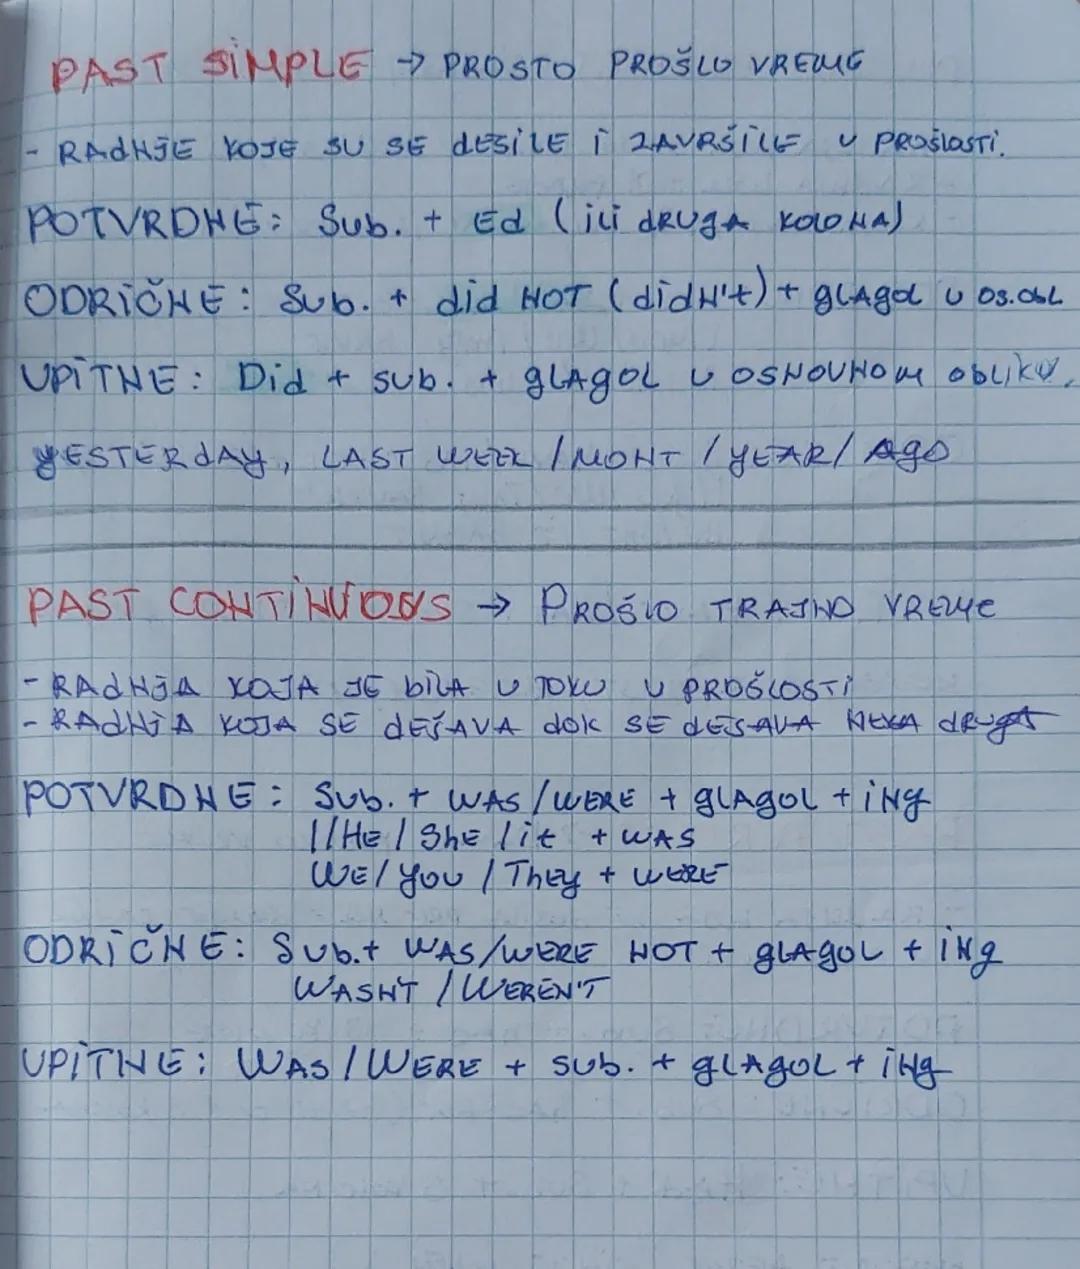 PAST SIMPLE → PROSTO PROŠLO VREME
- RADNJE KOJE SU SE DESILE I ZAVRŠILE U PROŠLOSTI.
POTVRDNE: Sub. + Ed (ili DRUGA KOLONA)
ODRIČNE: Sub. + did NOT (didN't) + gLAgol u OS.ObL
UPITNE: Did + sub. + gLAgOL u OSNOVNOM obLIKU.
YESTERdAY, LAST WEEK / MONT / YEAR / AgO
PAST CONTINUOUS → PROŠLO TRAJNO VREME
- RADNJA KOJA JE bILA U TOKU U PROŠLOSTI
- RADNJA KOJA SE DEŠAVA dOK SE DESAVA NEKA dRUgA
POTVRDNE: Sub. + WAS / WERE + gLAgOL + iNg
I/HE / ShE / it + WAS
WE / YOU / ThEy + WERE
ODRIČNE: Sub. + WAS/WERE NOT + gLAgOL + iNg
WASN'T / WEREN'T
UPITNE: WAS / WERE + sub. + gLAgOL + iNg